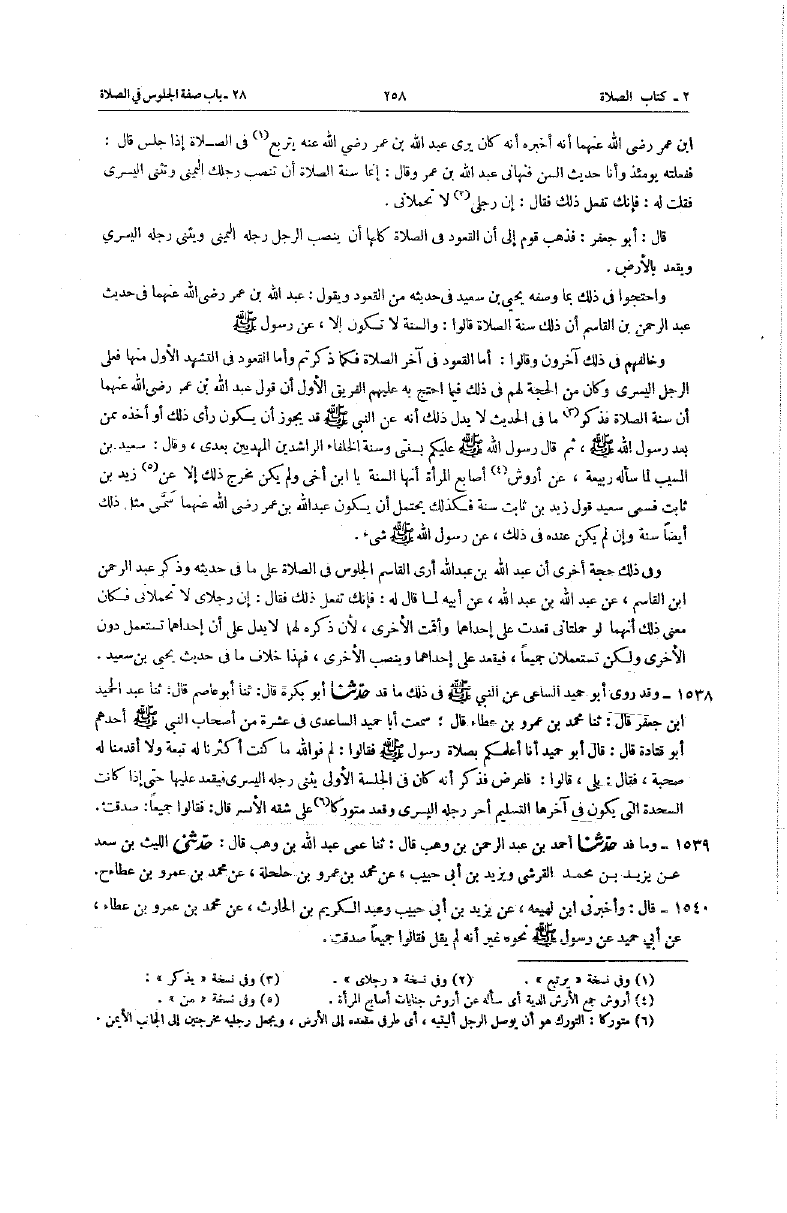 ٢ - كتاب الصلاة
٢٥٨
٢٨ - باب صفة الجلوس في الصلاة
ابن عمر رضى الله عنهما أنه أخبره أنه كان يرى عبد الله بن عمر رضي الله عنه يتربع(١) فى الصلاة إذا جلس قال :
ففعلته يومئذ وأنا حديث السن فنهانى عبد الله بن عمر وقال : إنما سنة الصلاة أن تنصب رجلك اليمنى وتثنى اليسرى
فقلت له : فإنك تفعل ذلك فقال : إن رجلى(٢) لا تحملانى .
قال : أبو جعفر : فذهب قوم إلى أن القعود فى الصلاة كلها أن ينصب الرجل رجله اليمنى ويثنى رجله اليسري
ويقعد بالأرض .
واحتجوا فى ذلك بما وصفه يحيى بن سعيد فى حديثه من القعود ويقول : عبد الله بن عمر رضى الله عنهما فى حديث
عبد الرحمن بن القاسم أن ذلك سنة الصلاة قالوا : والسنة لا تكون إلا ، عن رسول ﷺ
وخالفهم فى ذلك آخرون وقالوا : أما القعود فى آخر الصلاة فكما ذكرتم وأما القعود فى التشهد الأول منها فعلى
الرجل اليسرى وكان من الحجة لهم فى ذلك فيما احتج به عليهم الفريق الأول أن قول عبد الله بن عمر رضى الله عنهما
أن سنة الصلاة فذكر(٣) ما فى الحديث لا يدل ذلك أنه عن النبي ﷺ قد يجوز أن يكون رأى ذلك أو أخذه ممن
بعد رسول الله ﷺ ، ثم قال رسول الله ﷺ عليكم بسنتى وسنة الخلفاء الراشدين المهديين بعدى ، وقال : سعيد بن
المسيب لما سأله ربيعة ، عن أروش(٤) أصابع المرأة أنها السنة يا ابن أخى ولم يكن مخرج ذلك إلا عن(٥) زيد بن
ثابت فسمى سعيد قول زيد بن ثابت سنة فكذلك يحتمل أن يكون عبدالله بن عمر رضى الله عنهما سمّى مثل ذلك
أيضاً سنة وإن لم يكن عنده فى ذلك ، عن رسول الله ﷺ شىء .
وفى ذلك حجة أخرى أن عبد الله بن عبدالله أرى القاسم الجلوس فى الصلاة على ما فى حديثه وذكر عبد الرحمن
ابن القاسم ، عن عبد الله بن عبد الله ، عن أبيه لما قال له : فإنك تفعل ذلك فقال : إن رجلاى لا تحملانى فكان
معنى ذلك أنهما لو حملتانى قعدت على إحداهما وأقمت الأخرى ، لأن ذكره لهما لايدل على أن إحداهما تستعمل دون
الأخرى ولكن تستعملان جميعاً ، فيقعد على إحداهما وينصب الأخرى ، فهذا خلاف ما فى حديث يحيى بن سعيد .
١٥٣٨ - وقد روى أبو حميد الساعى عن النبي ﷺ فى ذلك ما قد حدثنا أبو بكرة قال: ثنا أبو عاصم قال: ثنا عبد الحميد
ابن جعفر قال : ثنا محمد بن عمرو بن عطاء قال ؛ سمعت أبا حميد الساعدى فى عشرة من أصحاب النبي ﷺ أحدهم
أبو قتادة قال : قال أبو حميد أنا أعلمكم بصلاة رسول ﷺ فقالوا : لم فوالله ما كنت أكثرنا له تبعة ولا أقدمنا له
صحبة ، فقال : بلى ، قالوا : فاعرض فذكر أنه كان فى الجلسة الأولى يثنى رجله اليسرى فيقعد عليها حتى إذا كانت
السحدة التى يكون فى آخرها التسليم أخر رجله اليسرى وقعد متوركا(٦) على شقه الأيسر قال: فقالوا جميعاً: صدقت .
١٥٣٩ - وما قد حدثنا أحمد بن عبد الرحمن بن وهب قال : ثنا عمى عبد الله بن وهب قال : حدثنى الليث بن سعد
عن يزيد بن محمد القرشي ويزيد بن أبى حبيب ، عن محمد بن عمرو بن حلحلة ، عن محمد بن عمرو بن عطاء ح.
١٥٤٠ - قال : وأخبرنى ابن لهيعة ، عن يزيد بن أبى حبيب وعبد الكريم بن الحارث ، عن محمد بن عمرو بن عطاء ،
عن أبي حميد عن رسول ﷺ نحوه غير أنه لم يقل فقالوا جميعاً صدقت .
(١) وفى نسخة « يرتبع » . (٢) وفى نسخة « رجلاى » . (٣) وفى نسخة « يذكر » :
(٤) أروش جمع الأرش الدية أى سأله عن أروش جنايات أصابع المرأة . (٥) وفى نسخة « من » .
(٦) متوركا : التورك هو أن يوصل الرجل أليتيه ، أى طرفى مقعده إلى الأرض ، ويجعل رجليه مخرجتين إلى الجانب الأيمن .